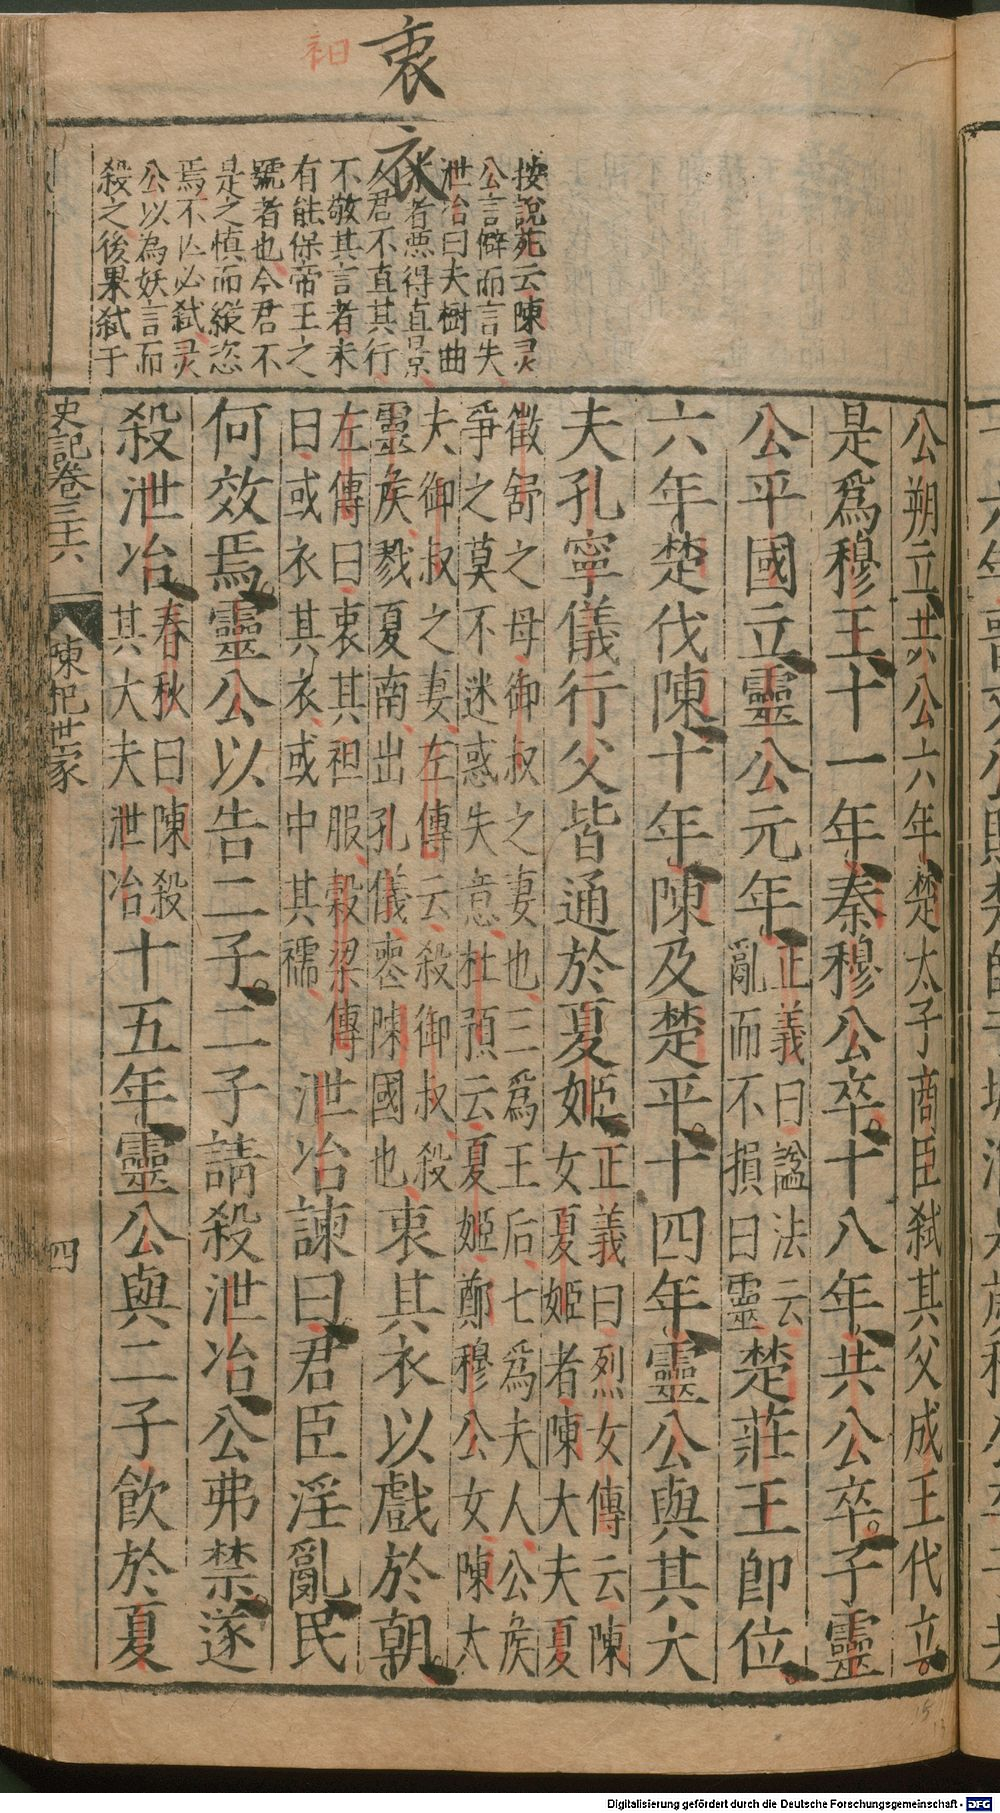 衷
衣
衵
按說苑云陳灵
公言僻而言失
泄冶曰夫樹曲
者惡得直景
人君不直其行
不敬其言者未
有能保帝王之
號者也今君不
是之慎而縱恣
焉不亾必弑灵
公以為妖言而
殺之後果弑于
公朔立共公六年楚太子商臣弑其父成王代立
是爲穆王十一年秦穆公卒十八年共公卒子靈
公平國立靈公元年
正義曰謚法云
亂而不損曰靈
楚莊王卽位
六年楚伐陳十年陳及楚平十四年靈公與其大
夫孔寧儀行父皆通於夏姬
正義曰烈女傳云陳
女夏姬者陳大夫夏
徵舒之母御叔之妻也三爲王后七爲夫人公矦
爭之莫不迷惑失意杜預云夏姬鄭穆公女陳大
夫御叔之妻左傳云殺御叔殺
靈矦戮夏南出孔儀喪陳國也
衷其衣以戲於朝
左傳曰衷其衵服穀梁傳
曰或衣其衣或中其襦
泄冶諫曰君臣淫亂民
何效焉靈公以告二子二子請殺泄冶公弗禁遂
殺泄冶
春秋曰陳殺
其大夫泄冶
十五年靈公與二子飲於夏
史記卷三十六
陳杞世家
四
Digitalisierung gefördert durch die Deutsche Forschungsgemeinschaft - DFG